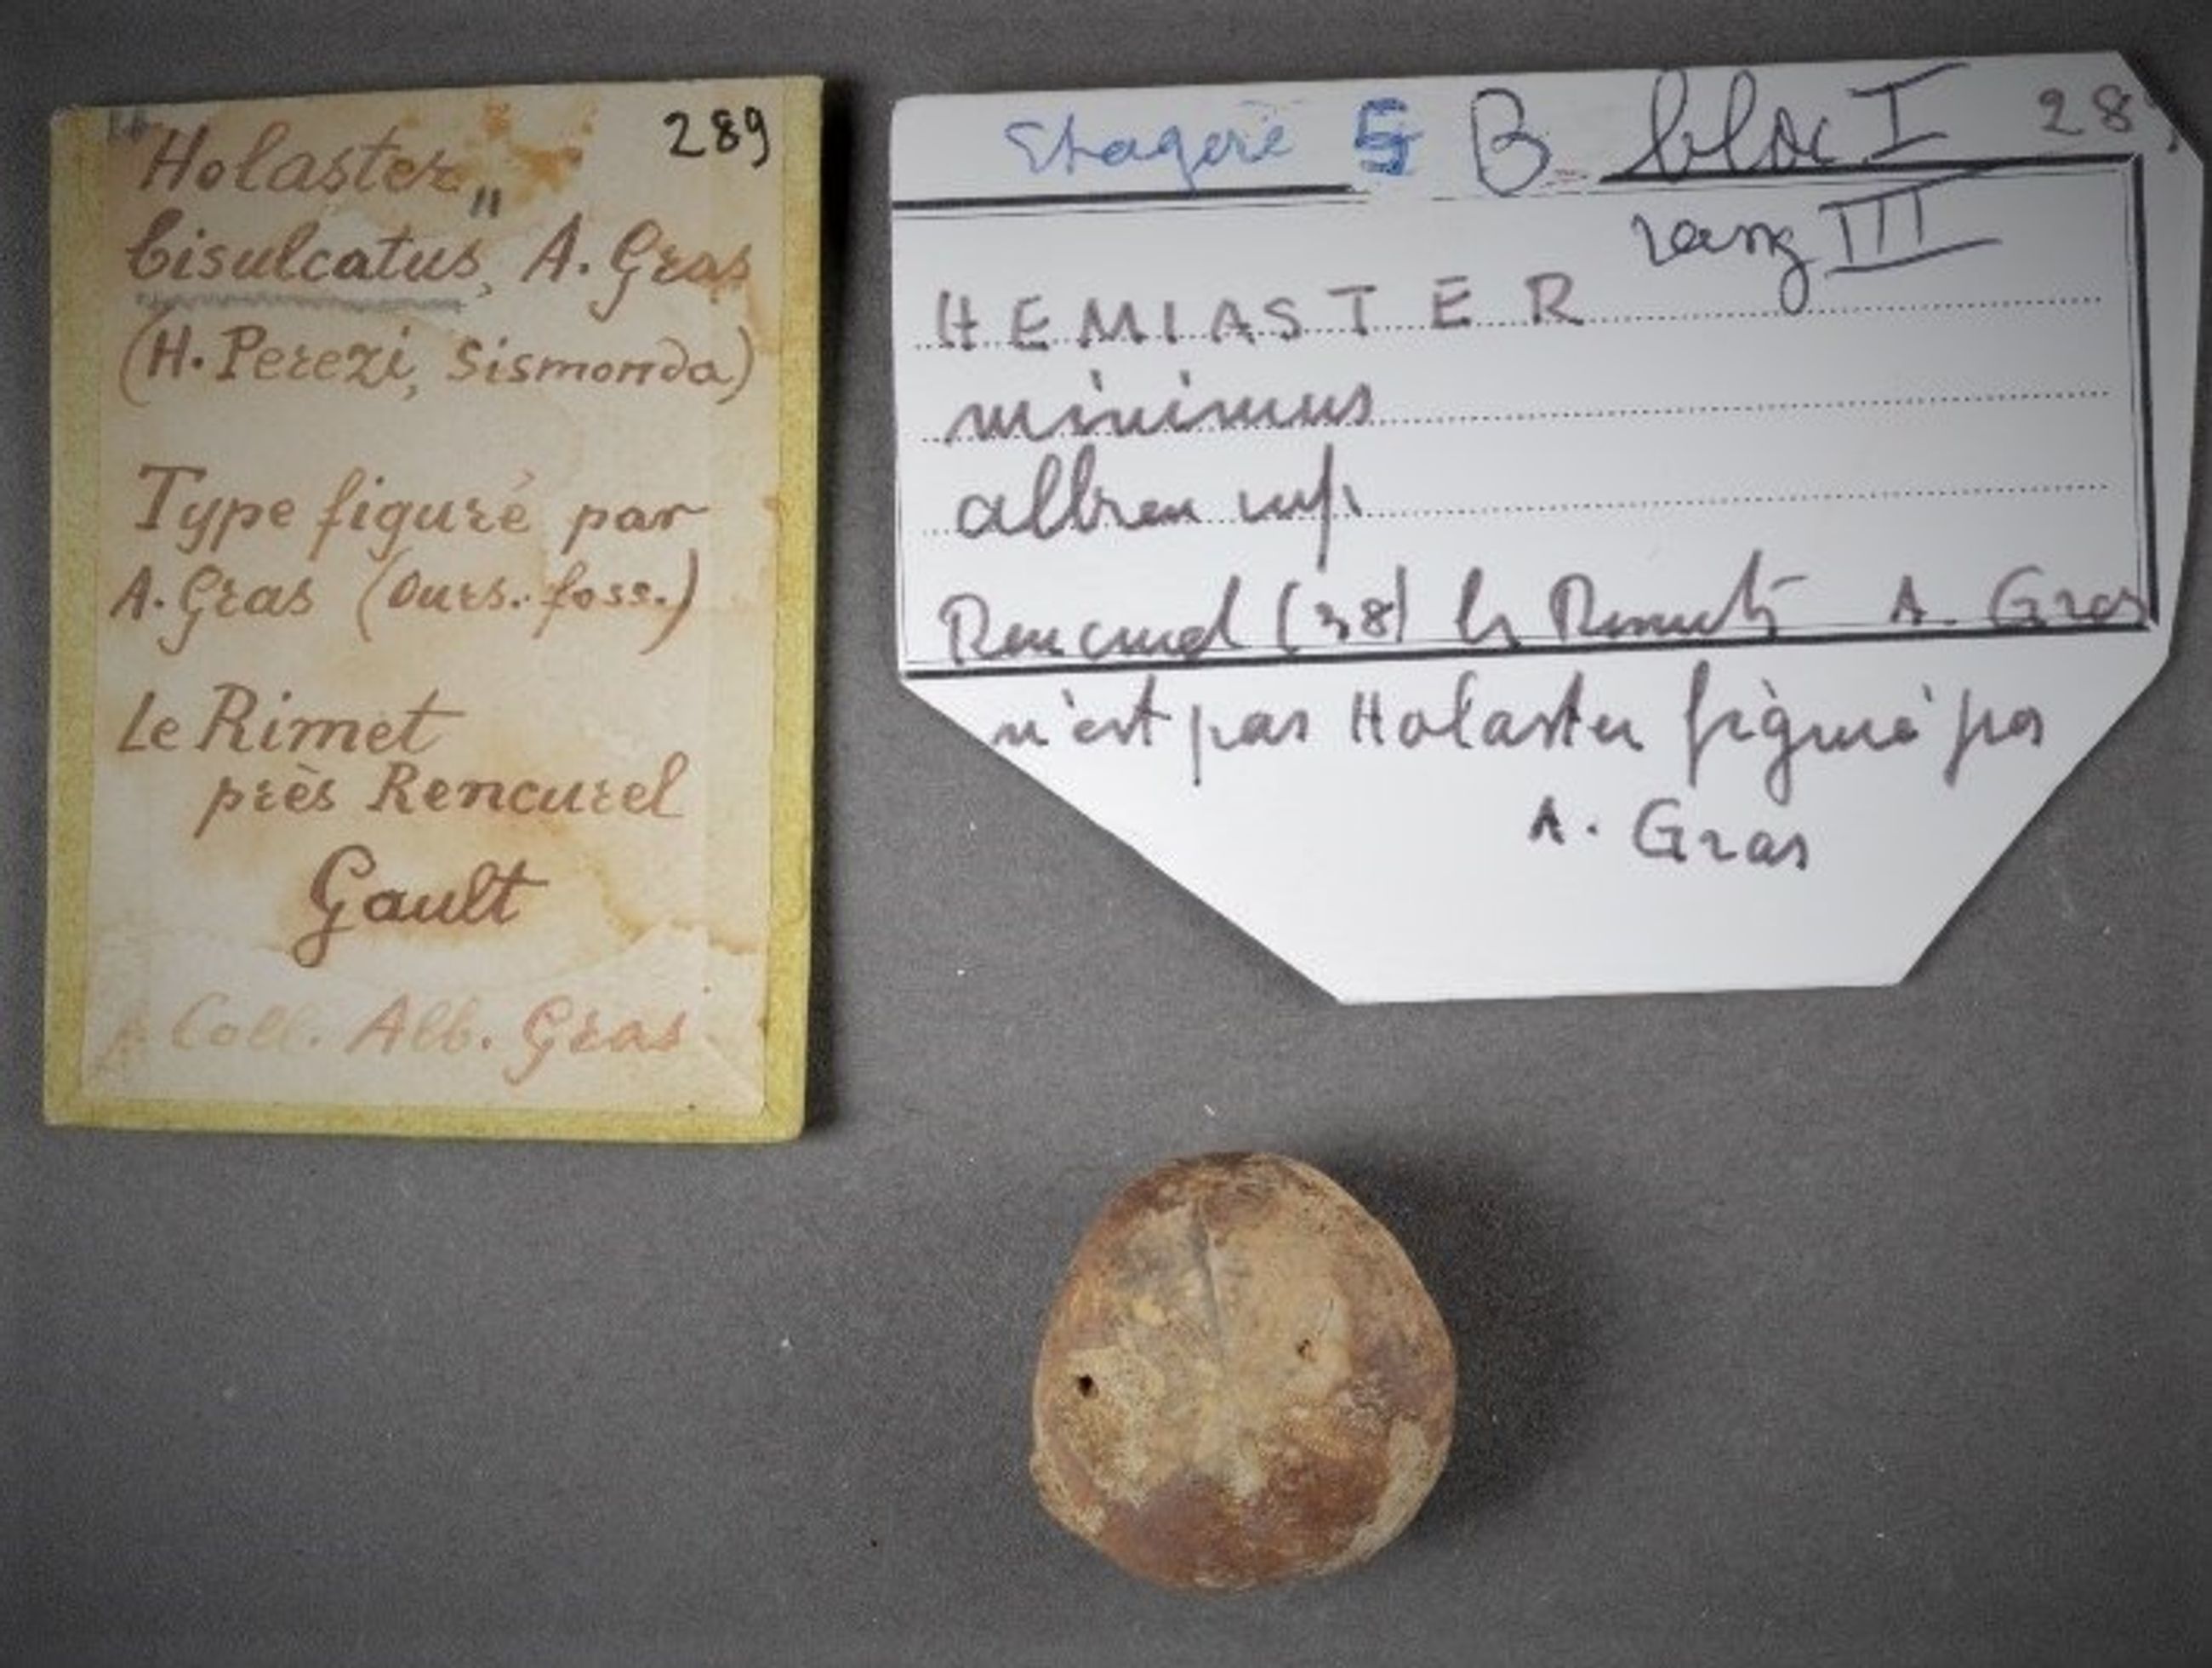 289
Holaster
bisulcatus, A. Gras
(H. Perezi, Sismonda)
Type figuré par
A. Gras (Ours. foss.)
Le Rimet
près Rencurel
Gault
Coll. Alb. Gras
Etagere 5 B bloc I 289
rang III
HEMIASTER
minimus
albien
Rencurel (38) A. Gras
n'est pas Holaster figuré par
A. Gras